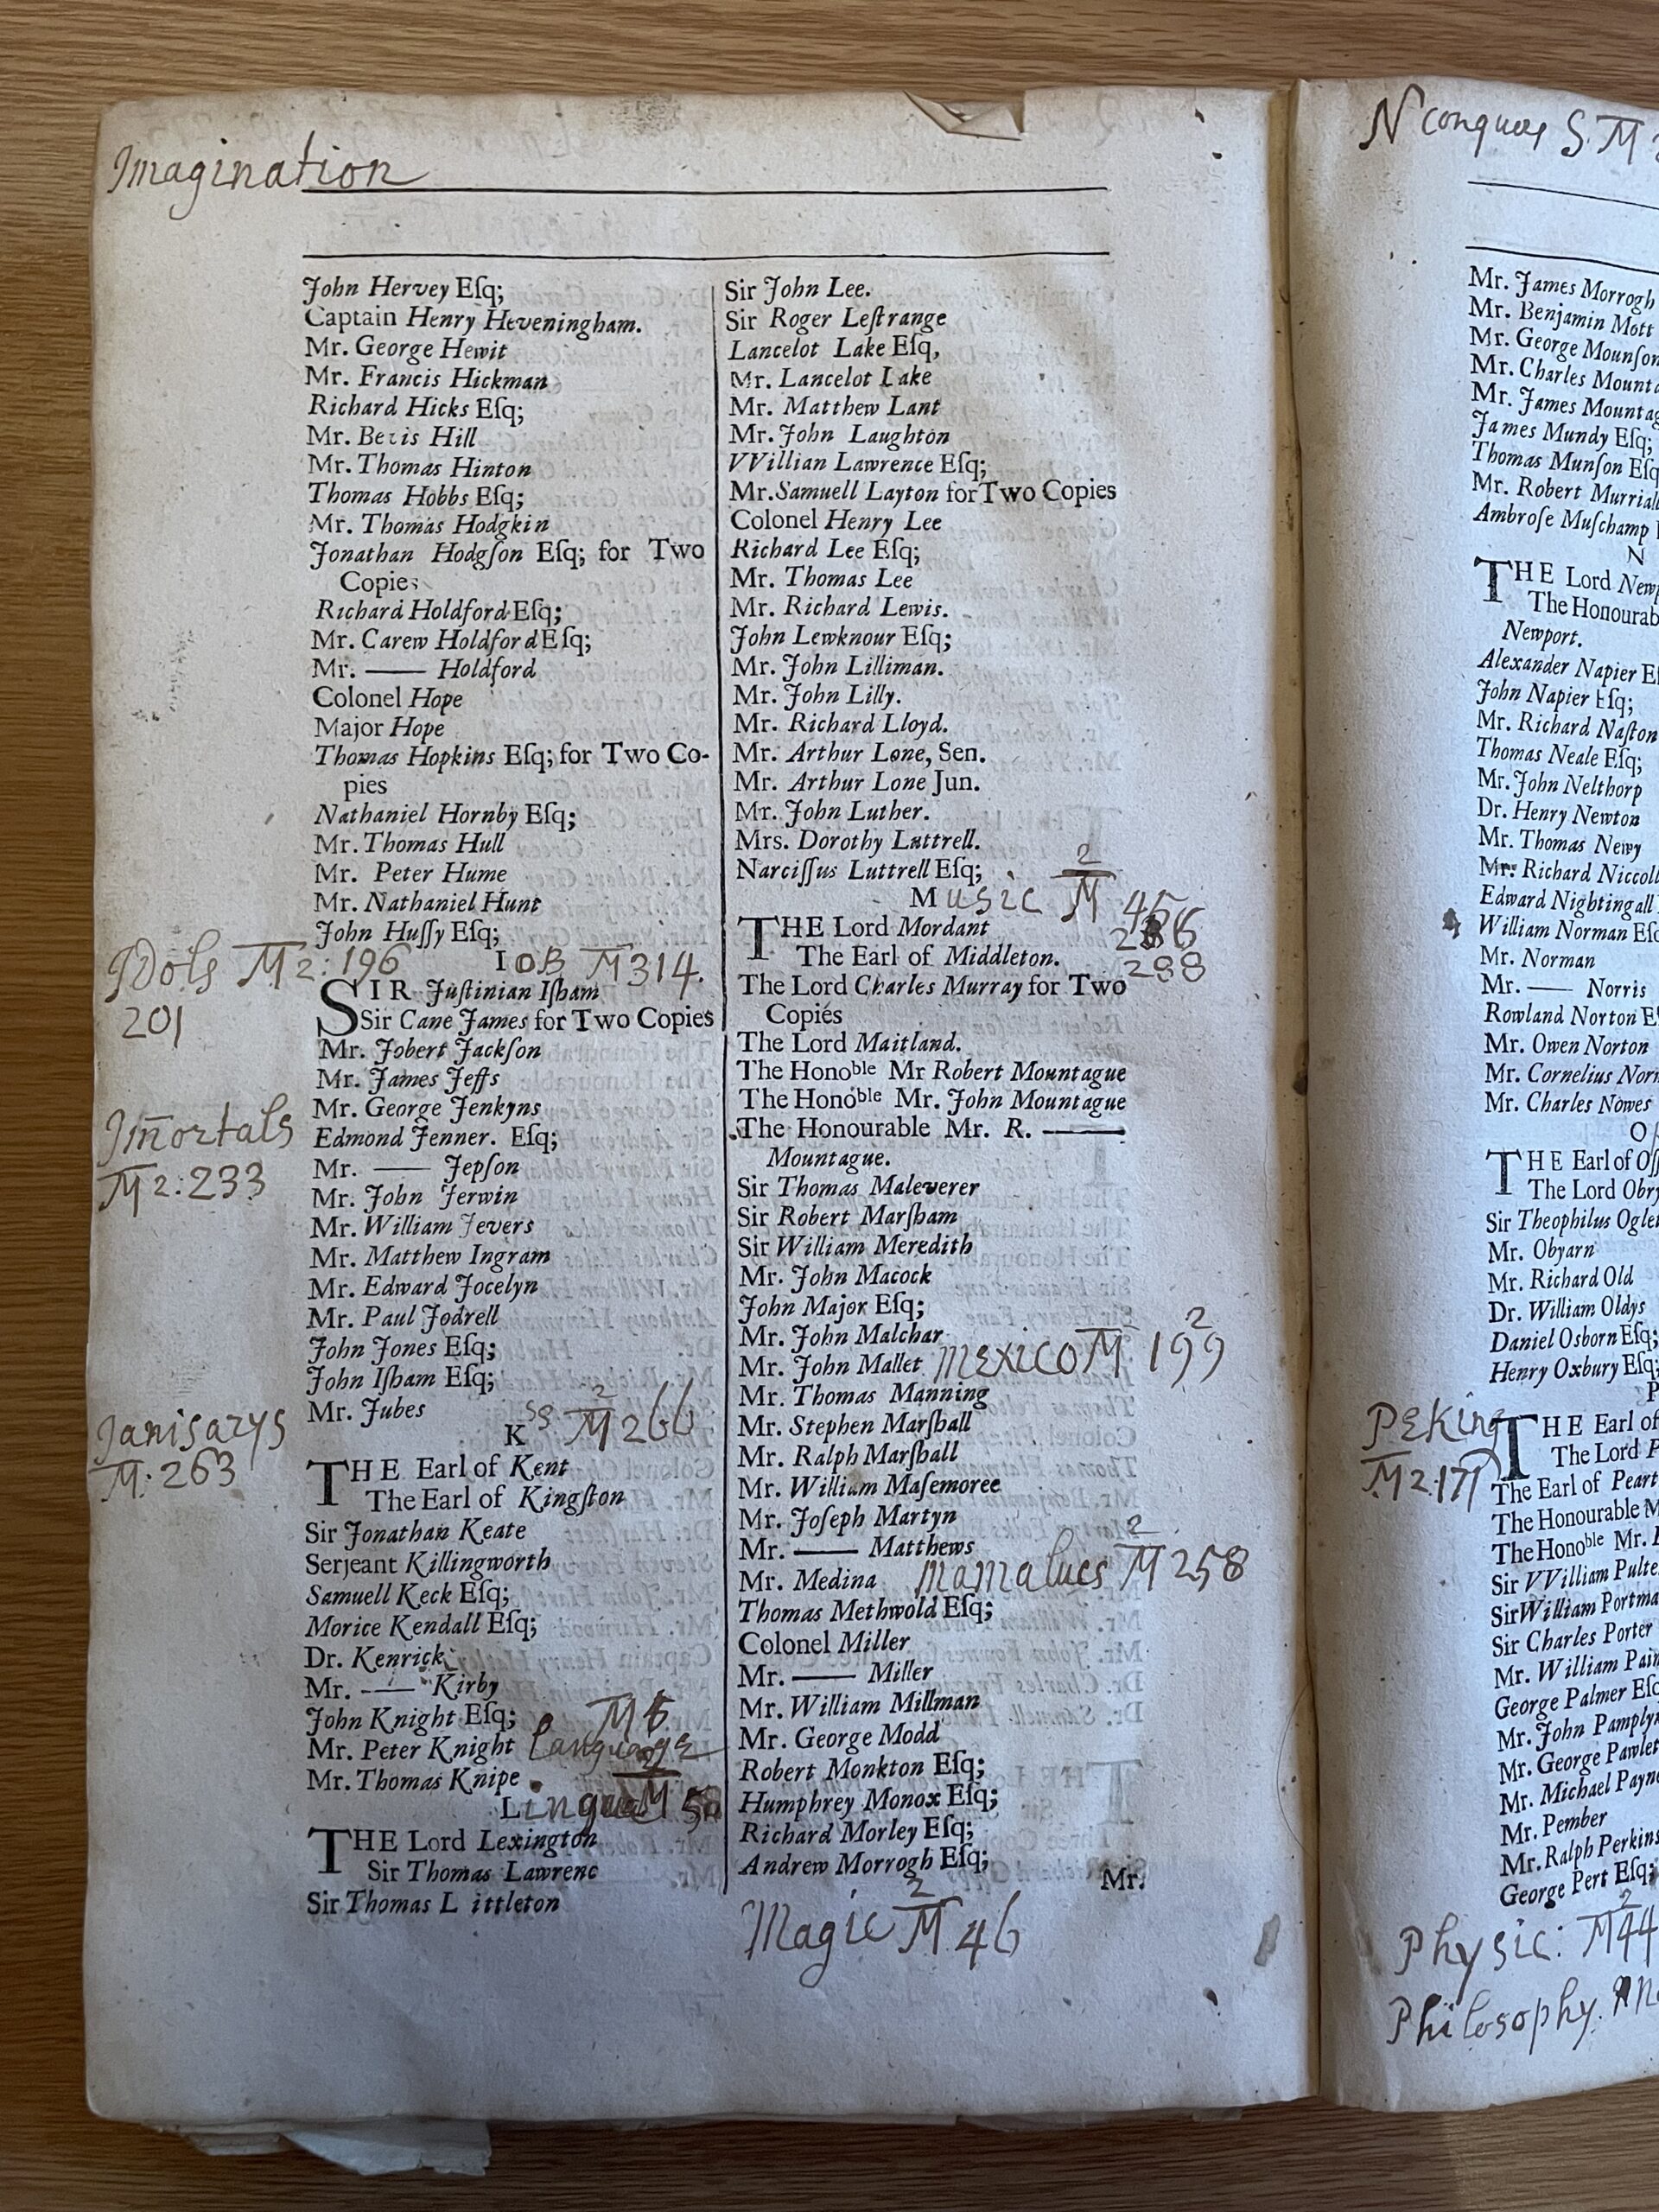 Imagination
John Hervey Eſq;
Captain Henry Heveningham.
Mr. George Hewit
Mr. Francis Hickman
Richard Hicks Eſq;
Mr. Bevis Hill
Mr. Thomas Hinton
Thomas Hobbs Eſq;
Mr. Thomas Hodgkin
Jonathan Hodgſon Eſq; for Two
Copies
Richard Holdford Eſq;
Mr. Carew Holdford Eſq;
Mr. —— Holdford
Colonel Hope
Major Hope
Thomas Hopkins Eſq; for Two Co-
pies
Nathaniel Hornby Eſq;
Mr. Thomas Hull
Mr. Peter Hume
Mr. Nathaniel Hunt
John Huſſy Eſq;
Idols M 2: 196
201
IOB M 314.
SIR Juſtinian Iſham
Sir Cane James for Two Copies
Mr. Jobert Jackſon
Mr. James Jeffs
Mr. George Jenkyns
Im̅ortals
M 2: 233
Edmond Jenner. Eſq;
Mr. —— Jepſon
Mr. John Jerwin
Mr. William Jevers
Mr. Matthew Ingram
Mr. Edward Jocelyn
Mr. Paul Jodrell
John Jones Eſq;
John Iſham Eſq;
Mr. Jubes
Janisarys
M: 263
K M 2 266
THE Earl of Kent
The Earl of Kingſton
Sir Jonathan Keate
Serjeant Killingworth
Samuell Keck Eſq;
Morice Kendall Eſq;
Dr. Kenrick
Mr. —— Kirby
John Knight Eſq;
Mr. Peter Knight Language
Mr. Thomas Knipe
Lingua M
THE Lord Lexington
Sir Thomas Lawrenc
Sir Thomas L ittleton
Sir John Lee.
Sir Roger Leſtrange
Lancelot Lake Eſq,
Mr. Lancelot Lake
Mr. Matthew Lant
Mr. John Laughton
VVillian Lawrence Eſq;
Mr. Samuell Layton for Two Copies
Colonel Henry Lee
Richard Lee Eſq;
Mr. Thomas Lee
Mr. Richard Lewis.
John Lewknour Eſq;
Mr. John Lilliman.
Mr. John Lilly.
Mr. Richard Lloyd.
Mr. Arthur Lone, Sen.
Mr. Arthur Lone Jun.
Mr. John Luther.
Mrs. Dorothy Luttrell.
Narciſſus Luttrell Eſq;
Music M 2
288
THE Lord Mordant
The Earl of Middleton.
The Lord Charles Murray for Two
Copies
The Lord Maitland.
The Honoble Mr Robert Mountague
The Honoble Mr. John Mountague
The Honourable Mr. R. ——
Mountague.
Sir Thomas Maleverer
Sir Robert Marſham
Sir William Meredith
Mr. John Macock
John Major Eſq;
Mr. John Malchar
Mr. John Mallet Mexico M 2 199
Mr. Thomas Manning
Mr. Stephen Marſhall
Mr. Ralph Marſhall
Mr. William Maſemoree
Mr. Joſeph Martyn
Mr. —— Matthews
Mr. Medina Mamalucs M 2 258
Thomas Methwold Eſq;
Colonel Miller
Mr. —— Miller
Mr. William Millman
Mr. George Modd
Robert Monkton Eſq;
Humphrey Monox Eſq;
Richard Morley Eſq;
Andrew Morrogh Eſq;
Mr.
Magic M 2 46
N conques S. M
Mr. James Morrogh
Mr. Benjamin Mott
Mr. George Mounſon
Mr. Charles Mount
Mr. James Mountag
James Mundy Eſq;
Thomas Munſon Eſq
Mr. Robert Murrial
Ambroſe Muſchamp
N
THE Lord Newp
The Honourab
Newport.
Alexander Napier E
John Napier Eſq;
Mr. Richard Naſton
Thomas Neale Eſq;
Mr. John Nelthorp
Dr. Henry Newton
Mr. Thomas Newy
Mr. Richard Niccoll
Edward Nightingall
William Norman Eſq
Mr. Norman
Mr. —— Norris
Rowland Norton E
Mr. Owen Norton
Mr. Cornelius Norr
Mr. Charles Nowes
O
THE Earl of Oſſ
The Lord Obry
Sir Theophilus Ogle
Mr. Obyarn
Mr. Richard Old
Dr. William Oldys
Daniel Osborn Eſq;
Henry Oxbury Eſq;
P
PEKing
M 2: 177
THE Earl of
The Lord P
The Earl of Peart
The Honourable M
The Honoble Mr.
Sir VVilliam Pulte
Sir William Portma
Sir Charles Porter
Mr. William Pain
George Palmer Eſq
Mr. John Pamplyn
Mr. George Pawlet
Mr. Michael Payne
Mr. Pember
Mr. Ralph Perkins
George Pert Eſq;
Physic: M 2 44
Philosophy.